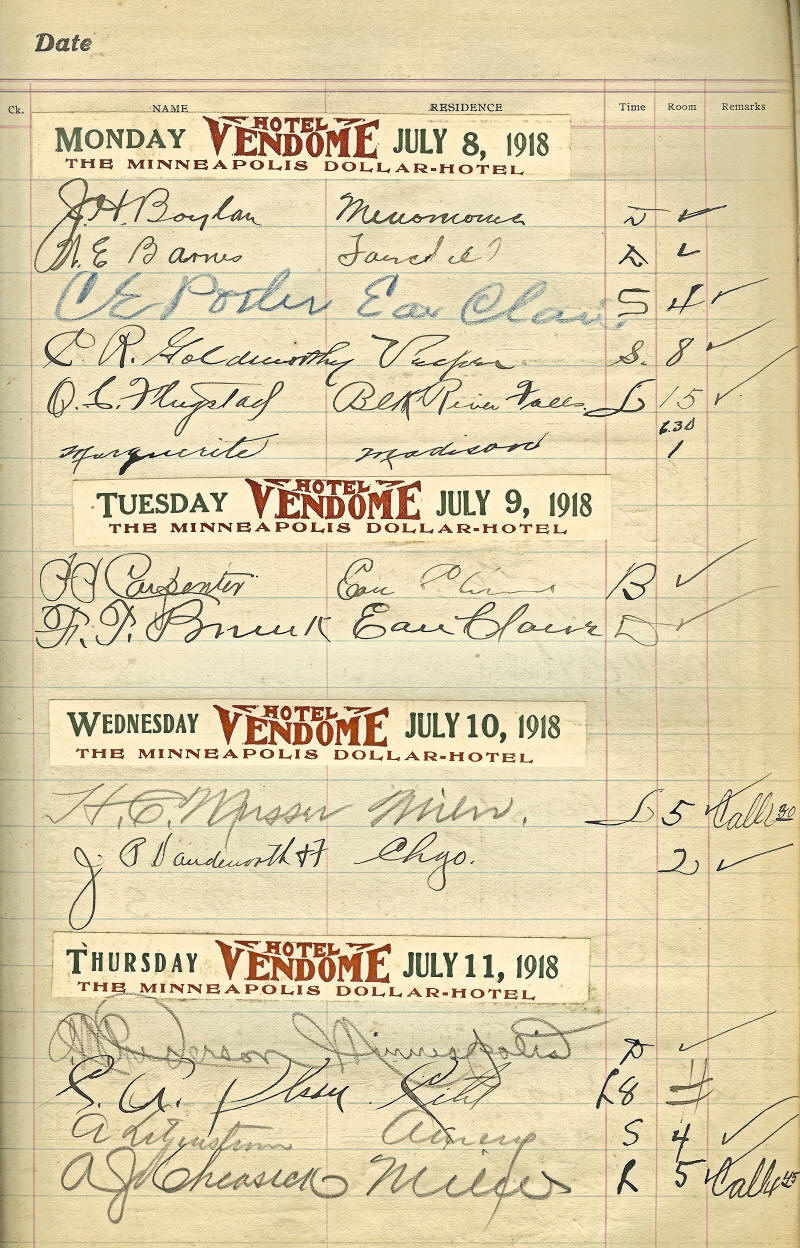 Date
Ck. NAME RESIDENCE Time Room Remarks
MONDAY HOTEL VENDOME JULY 8, 1918
THE MINNEAPOLIS DOLLAR-HOTEL
J. H. Boylan Menomonie D ✓
N. E Barnes D ✓
C E Porter Eau Claire S 4 ✓
C R. Goldsworthy Vesper S. 8 ✓
O. C. Flugstad Blk River Falls. L 15 ✓
6.30
Marguerite Madison 1
TUESDAY HOTEL VENDOME JULY 9, 1918
THE MINNEAPOLIS DOLLAR-HOTEL
Carpenter Eau Claire B ✓
F. F. Eau Claire D ✓
WEDNESDAY HOTEL VENDOME JULY 10, 1918
THE MINNEAPOLIS DOLLAR-HOTEL
H. C. Musser Milw. L 5 ✓ Call 30
J P Chgo. 2 ✓
THURSDAY HOTEL VENDOME JULY 11, 1918
THE MINNEAPOLIS DOLLAR-HOTEL
Anderson Minneapolis D ✓
S. A. Olson L8
A S 4 ✓
A J Cheasick Milw R 5 ✓ Call 45